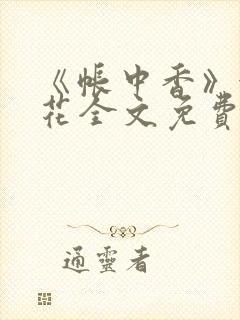 《帐中香》
花全文免費
通靈者